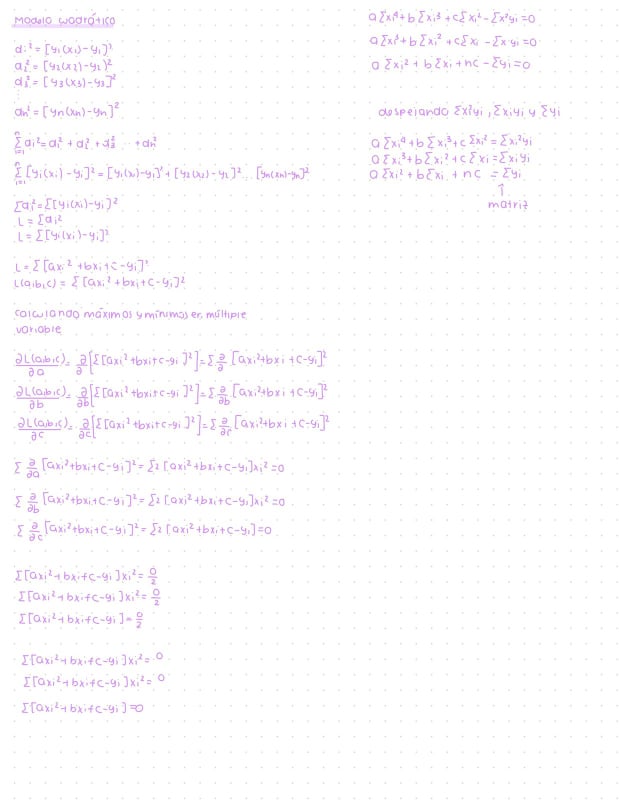 Modelo cuadrático
d₁² = [y₁(x₁) - y₁]²
d₂² = [y₂(x₂) - y₂)²
d₃² = [y₃(x₃) - y₃]²
⋮
dn² = [yn(xn) - yn]²
n
Σ di² = d₁² + d₂² + d₃² ... + dn²
i=1
n
Σ [yi(xi) - yi]² = [y₁(xi) - y₁]² + [y₂(x₂) - y₂]² ... [yn(xn) - yn]²
i=1
Σdi² = Σ[yi(xi) - yi]²
L = Σdi²
L = Σ[yi(xi) - yi]²
L = Σ[axi² + bxi + c - yi]²
L(a,b,c) = Σ[axi² + bxi + c - yi]²
calculando máximos y mínimos en múltiple
variable
∂L(a,b,c)/∂a = ∂/∂ [Σ[axi² + bxi + c - yi]²] = Σ ∂/∂ [axi² + bxi + c - yi]²
∂L(a,b,c)/∂b = ∂/∂b [Σ[axi² + bxi + c - yi]²] = Σ ∂/∂b [axi² + bxi + c - yi]²
∂L(a,b,c)/∂c = ∂/∂c [Σ[axi² + bxi + c - yi]²] = Σ ∂/∂c [axi² + bxi + c - yi]²
Σ ∂/∂a [axi² + bxi + c - yi]² = Σ2[axi² + bxi + c - yi]xi² = 0
Σ ∂/∂b [axi² + bxi + c - yi]² = Σ2[axi² + bxi + c - yi]xi² = 0
Σ ∂/∂c [axi² + bxi + c - yi]² = Σ2[axi² + bxi + c - yi] = 0
Σ[axi² + bxi + c - yi]xi² = 0/2
Σ[axi² + bxi + c - yi]xi² = 0/2
Σ[axi² + bxi + c - yi] = 0/2
Σ[axi² + bxi + c - yi]xi² = 0
Σ[axi² + bxi + c - yi]xi² = 0
Σ[axi² + bxi + c - yi] = 0
aΣxi⁴ + bΣxi³ + cΣxi² - Σx²yi = 0
aΣxi³ + bΣxi² + cΣxi - Σx yi = 0
aΣxi² + bΣxi + nc - Σyi = 0
despejando Σxi²yi, Σxiyi y Σyi
aΣxi⁴ + bΣxi³ + cΣxi² = Σxi²yi
aΣxi³ + bΣxi² + cΣxi = Σxiyi
aΣxi² + bΣxi + nc = Σyi
⇑
matriz